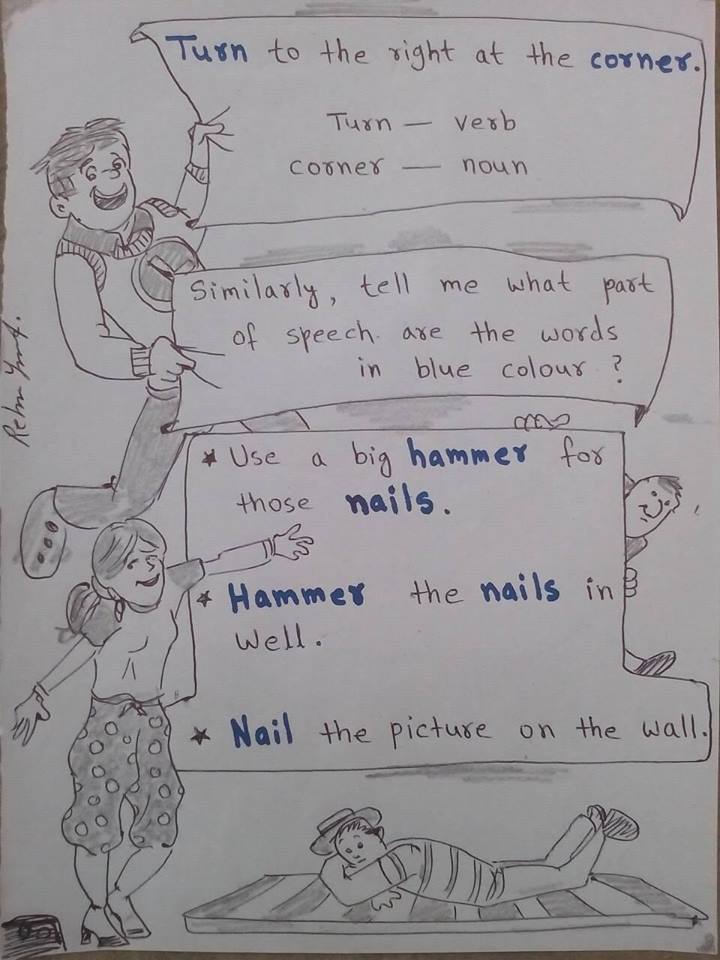 Turn to the right at the corner.
Turn — verb
corner — noun
Similarly, tell me what part
of speech are the words
in blue colour ?
★ Use a big hammer for
those nails.
★ Hammer the nails in
well.
★ Nail the picture on the wall.